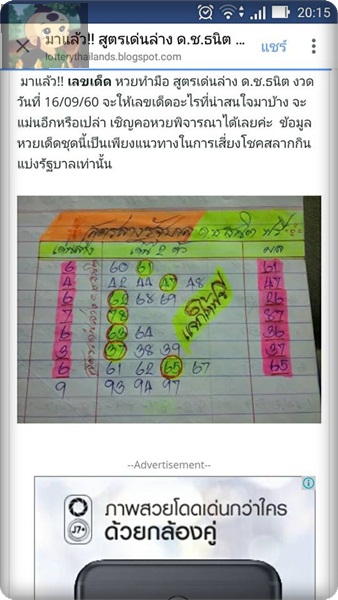 20:15
มาแล้ว!! สูตรเด่นล่าง ด.ช.ธนิต ...
แชร์
lotterythailands.blogspot.com
มาแล้ว!! เลขเด็ด หวยทำมือ สูตรเด่นล่าง ด.ช.ธนิต งวด
วันที่ 16/09/60 จะให้เลขเด็ดอะไรที่น่าสนใจมาบ้าง จะ
แม่นอีกหรือเปล่า เชิญคอหวยพิจารณาได้เลยค่ะ ข้อมูล
หวยเด็ดชุดนี้เป็นเพียงแนวทางในการเสี่ยงโชคสลากกิน
แบ่งรัฐบาลเท่านั้น
เด่นล่าง เด่น 2 ตัว ผล
6 60 61 61
4 42 44 47 48 47
6 62 68 69 26
7 78 87
6 63 64 36
3 37 38 39 37
6 61 62 65 67 65
9 93 94 97
--Advertisement--
J7+
ภาพสวยโดดเด่นกว่าใคร
ด้วยกล้องคู่